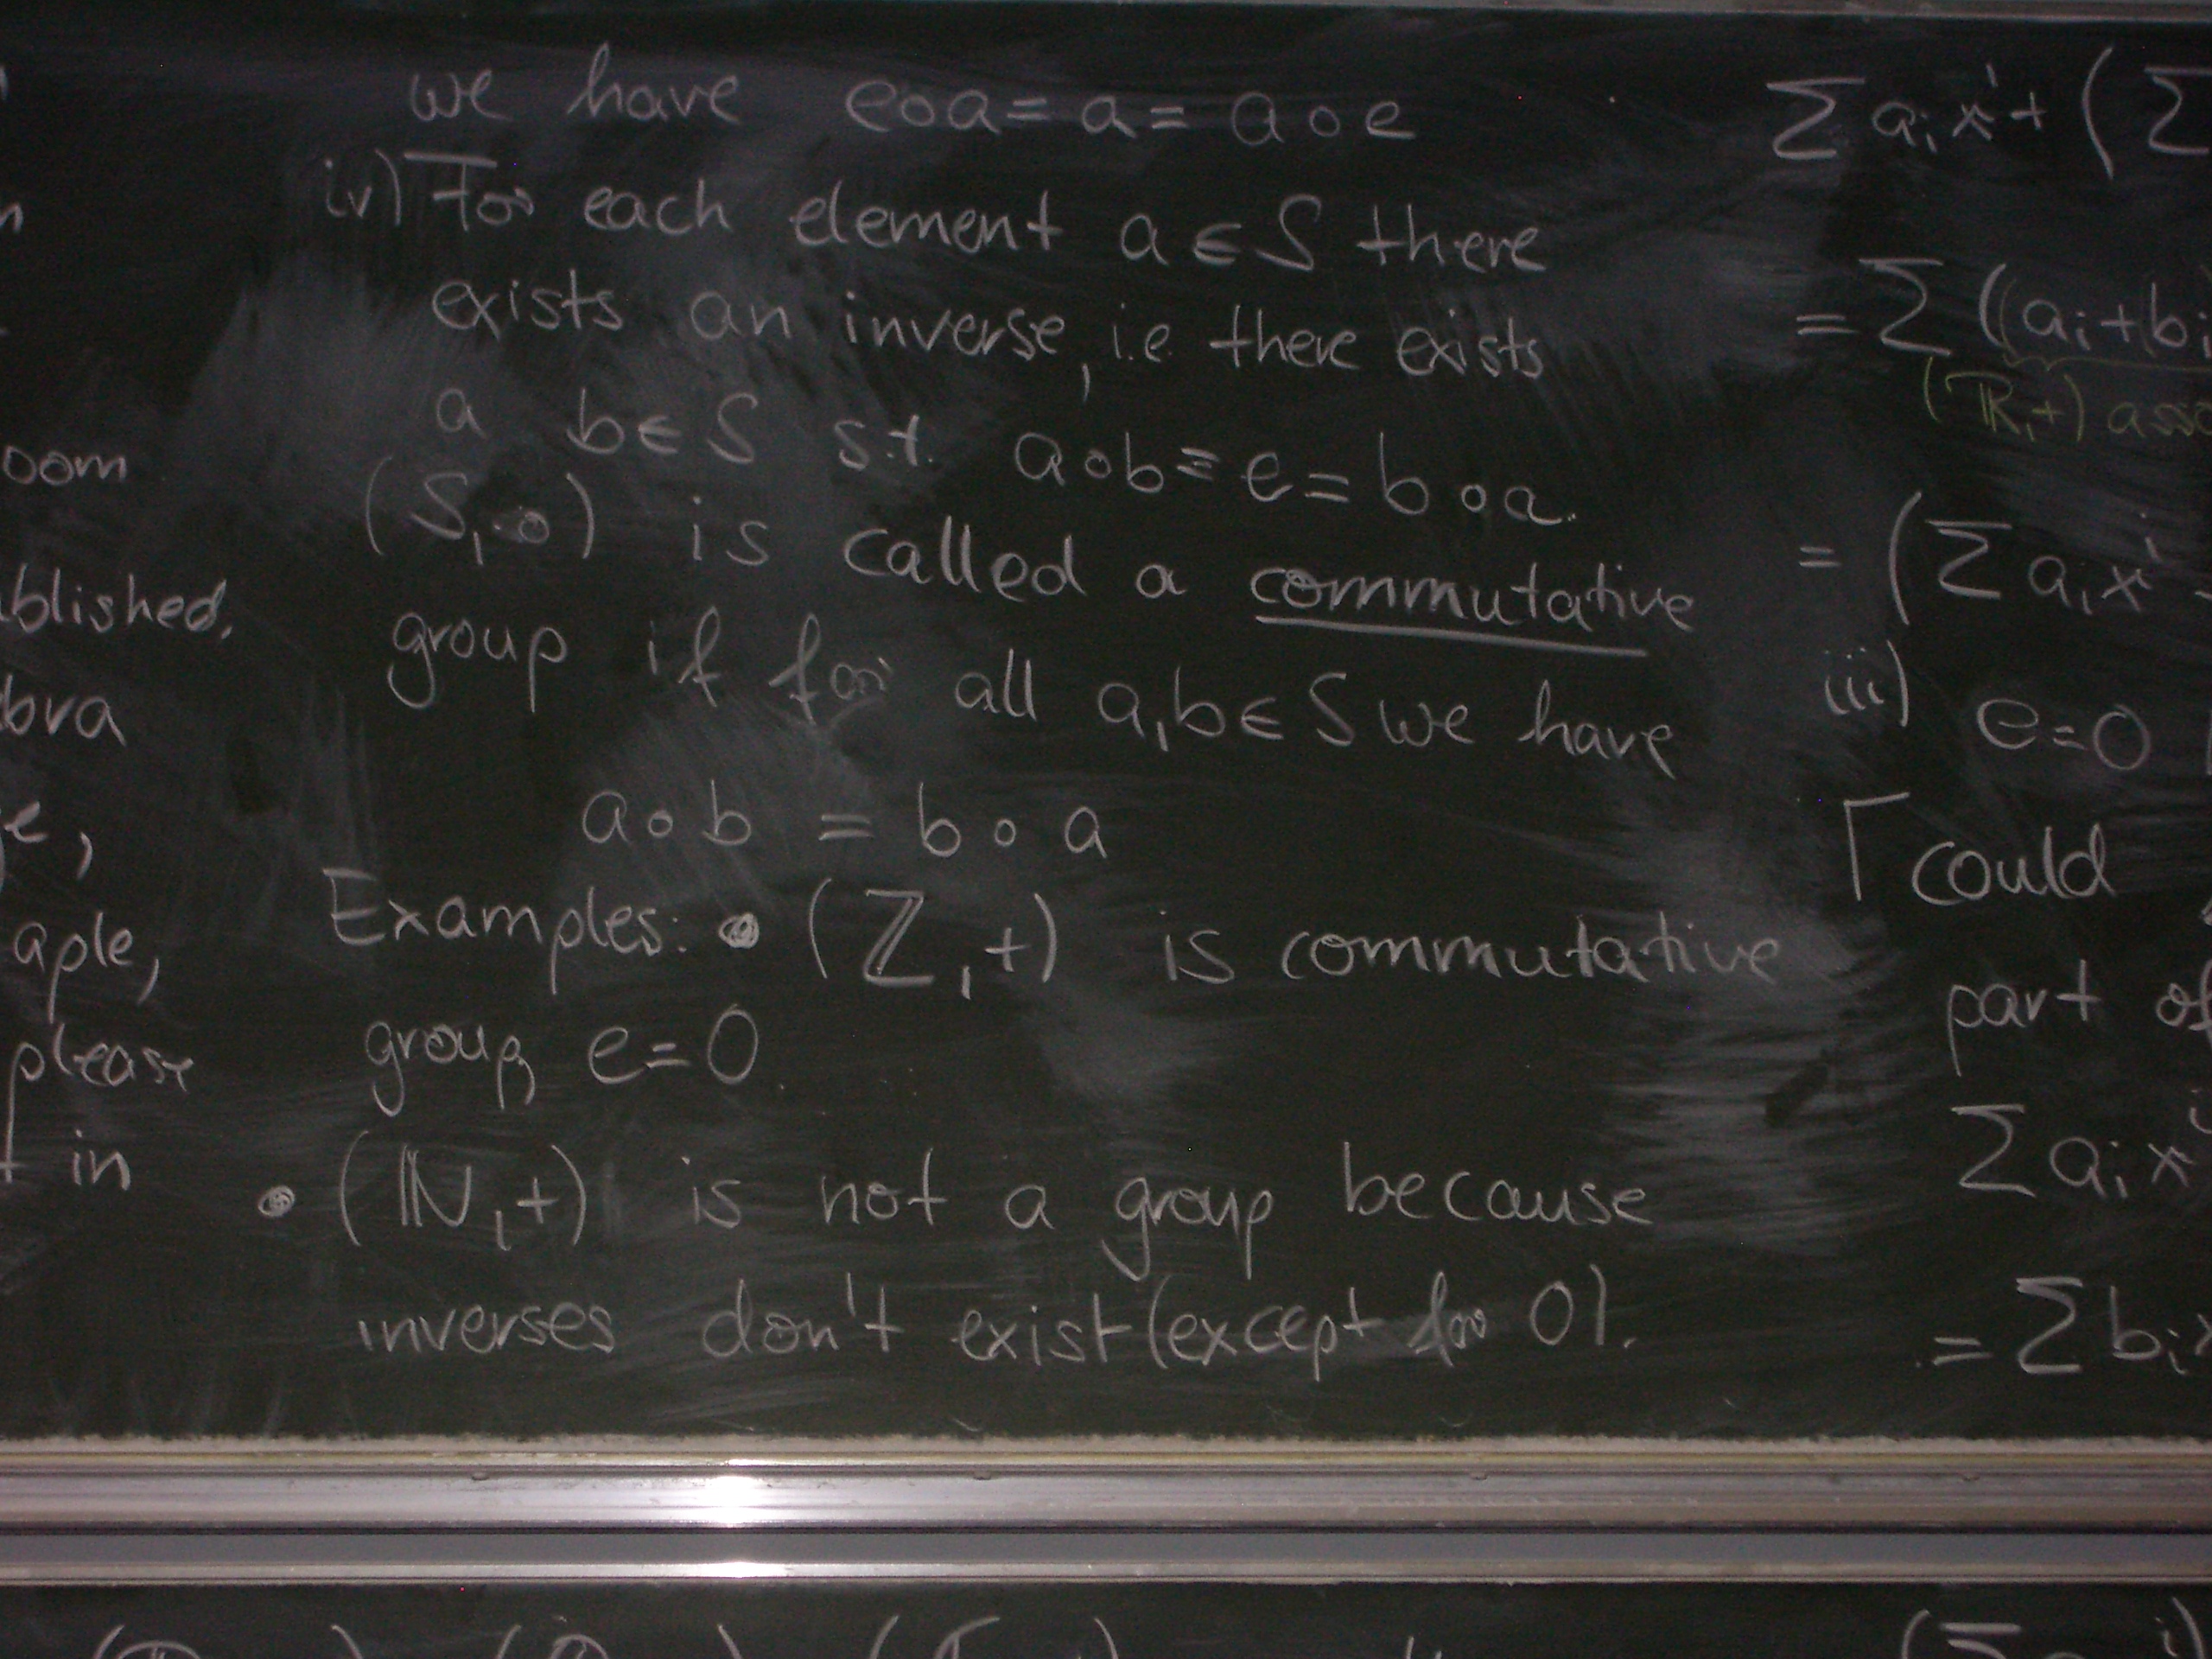 oom
blished,
bra
e,
aple,
please
in
we have e∘a = a = a∘e
iv) For each element a ∈ S there
exists an inverse, i.e. there exists
a b ∈ S s.t. a∘b = e = b∘a.
(S, ∘) is called a commutative
group if for all a, b ∈ S we have
a∘b = b∘a
Examples: • (ℤ, +) is commutative
group, e = 0.
• (ℕ, +) is not a group because
inverses don't exist (except for 0).
∑ aᵢxⁱ + (∑
= ∑ ((aᵢ + bᵢ
(ℝ, +) asso
= (∑ aᵢxⁱ
iii) e = 0
⌈ could
part of
∑ aᵢxⁱ
= ∑ bᵢx